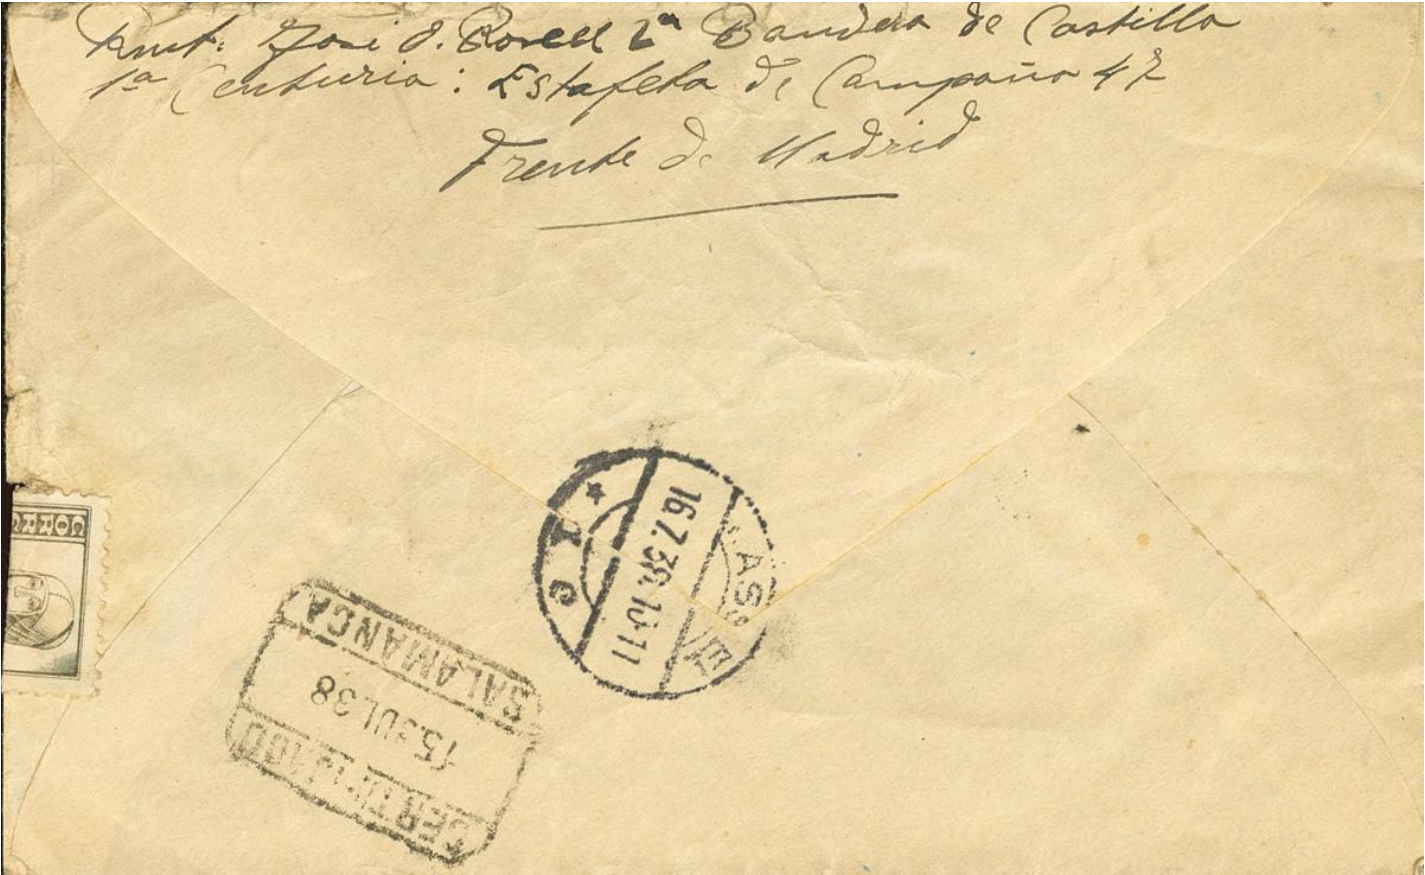 Rmt: José J. Borell 2ª Bandera de Castilla
1ª Centuria: Estafeta de Campaña 47
Frente de Madrid
16.7.38.10-11
CERTIFICADO
15 JUL 38
SALAMANCA
CORREOS